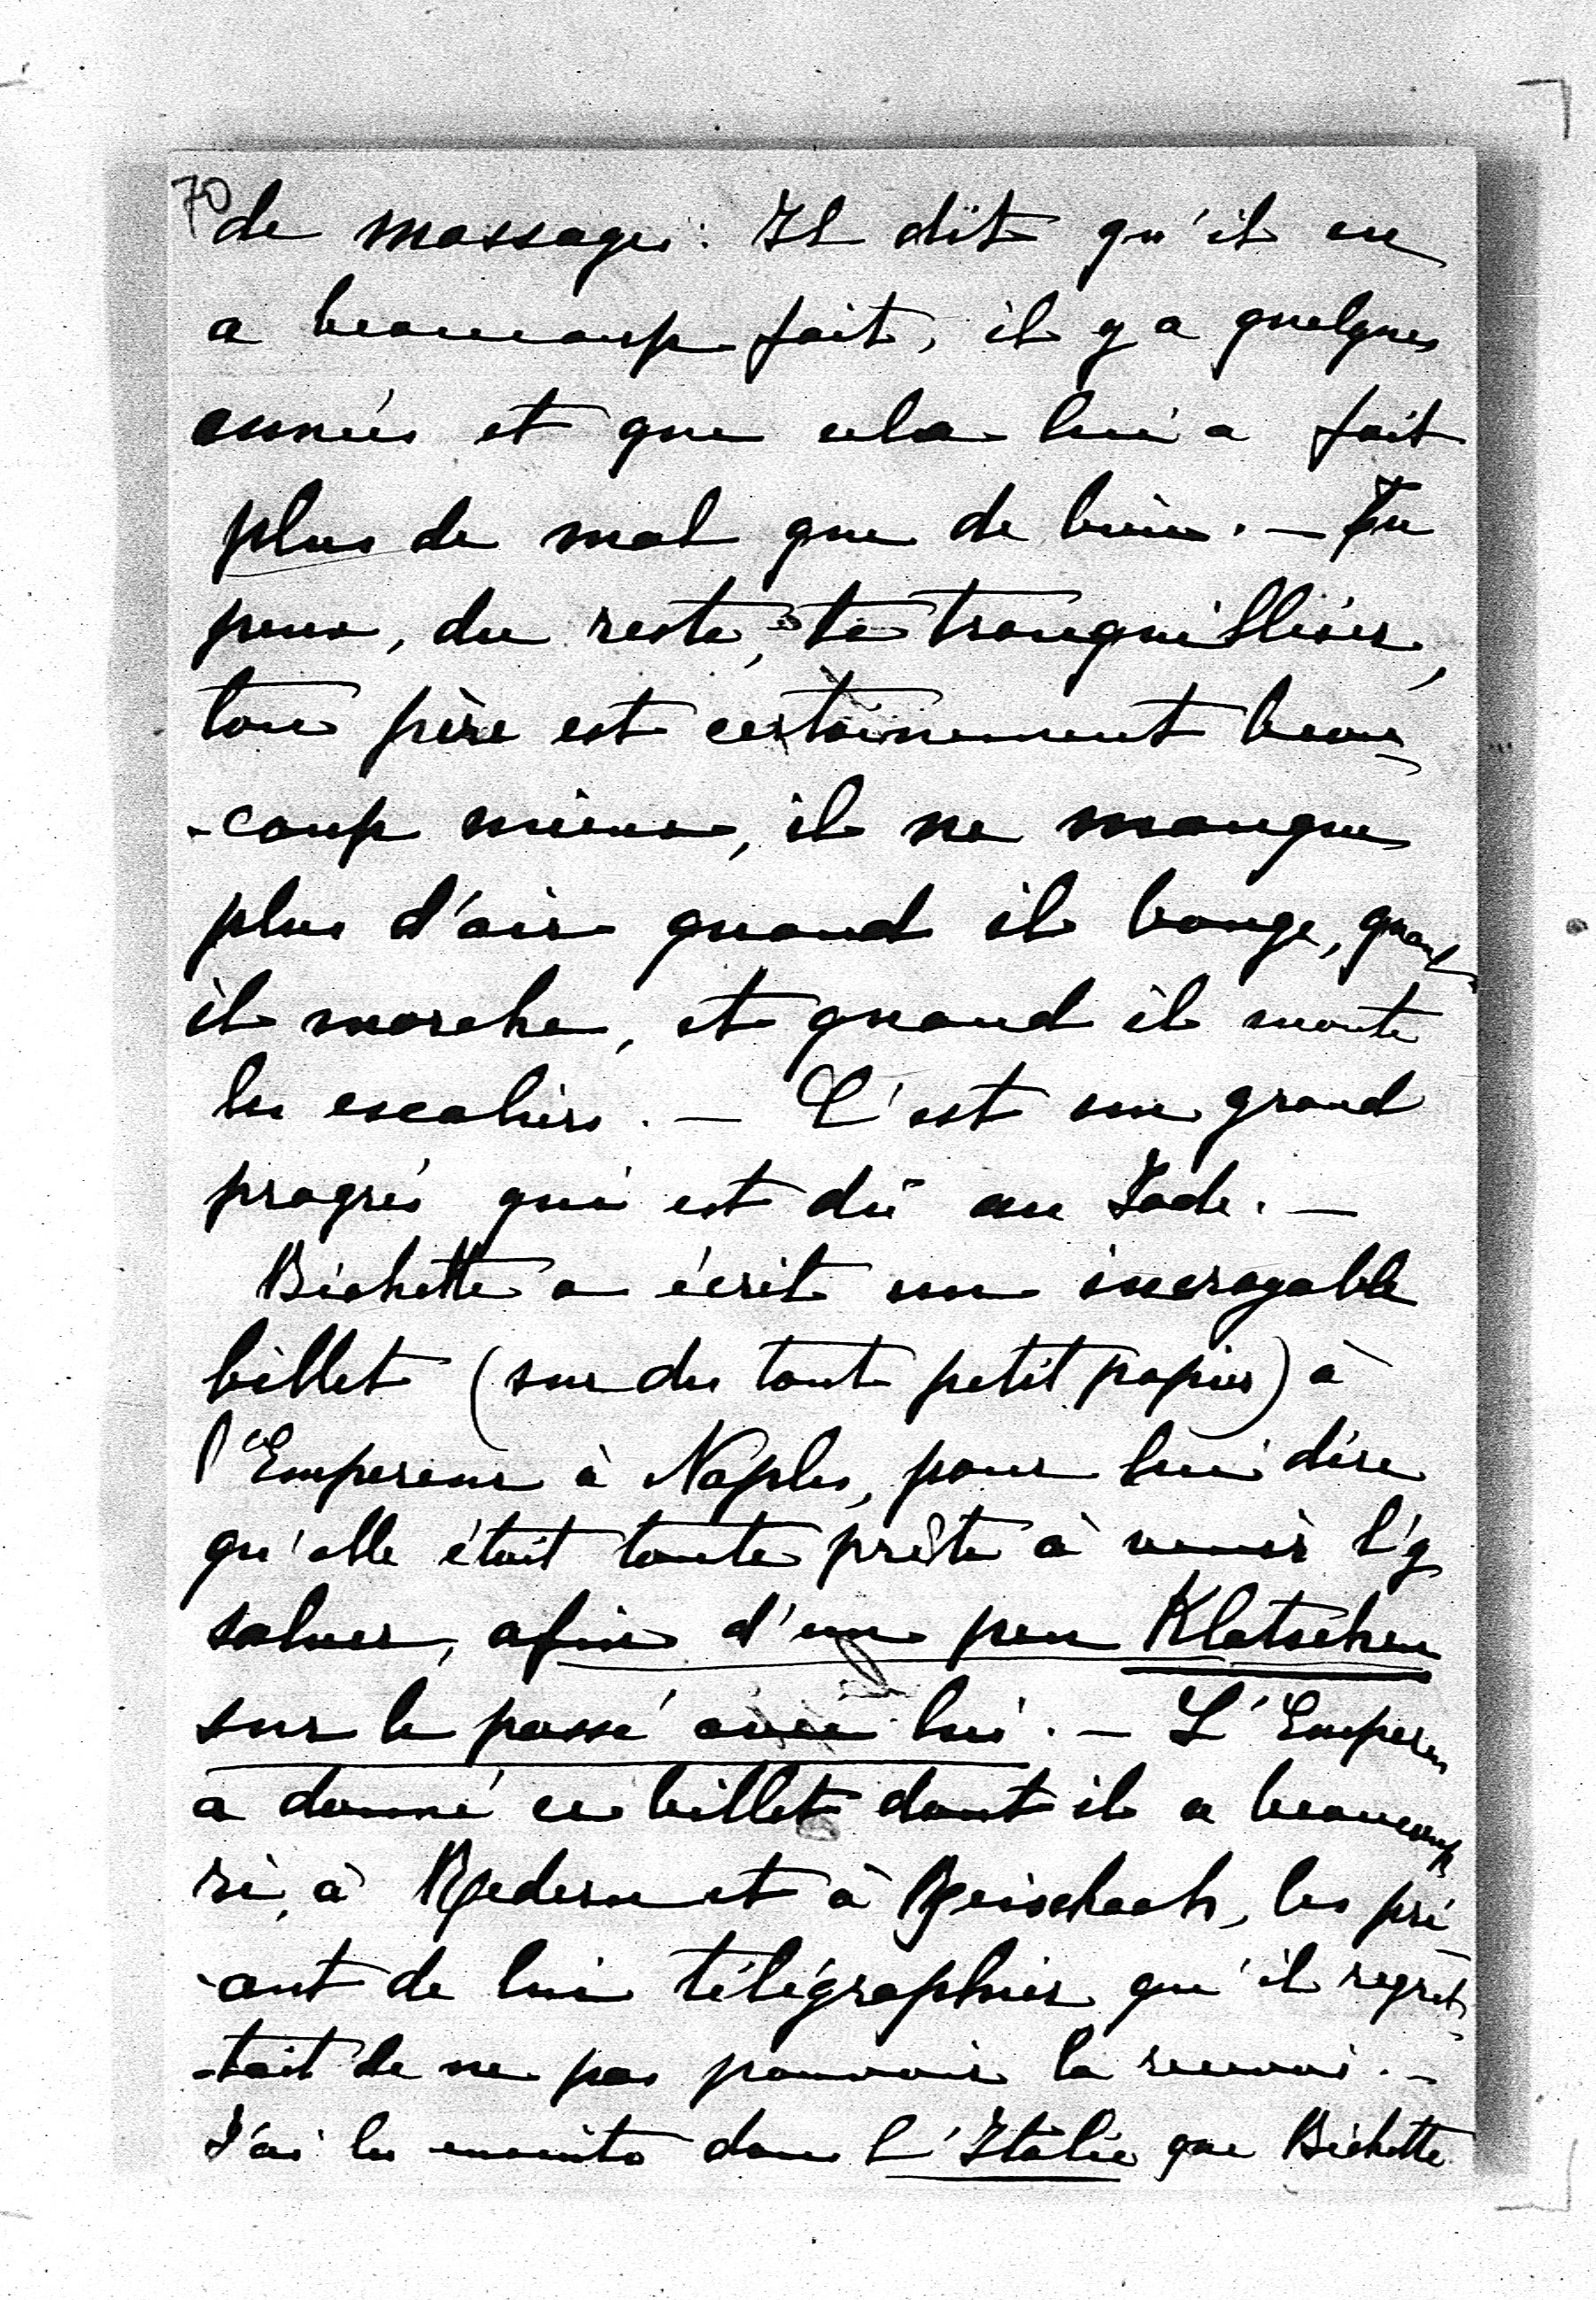 70
de massages : Il dit qu'il en
a beaucoup fait, il y a quelques
années et que cela lui a fait
plus de mal que de bien. — Tu
peux, du reste, te tranquilliser,
ton père est certainement beau-
-coup mieux, il ne manque
plus d'air quand il bouge, quand
il marche, et quand il monte
les escaliers. — C'est un grand
progrès qui est dû au Iode. —
Bichette a écrit un incroyable
billet (sur du tout petit papier) à
l'Empereur à Naples, pour lui dire
qu'elle était toute prête à venir l'y
saluer, afin d'un peu Klatschen
sur le passé avec lui. — L'Empereur
a donné ce billet dont il a beaucoup
ri, à Redern et à Reischach, les pri
-ant de lui télégraphier qu'il regret-
-tait de ne pas pouvoir la recevoir. —
J'ai lu ensuite dans L'Italie que Bichette